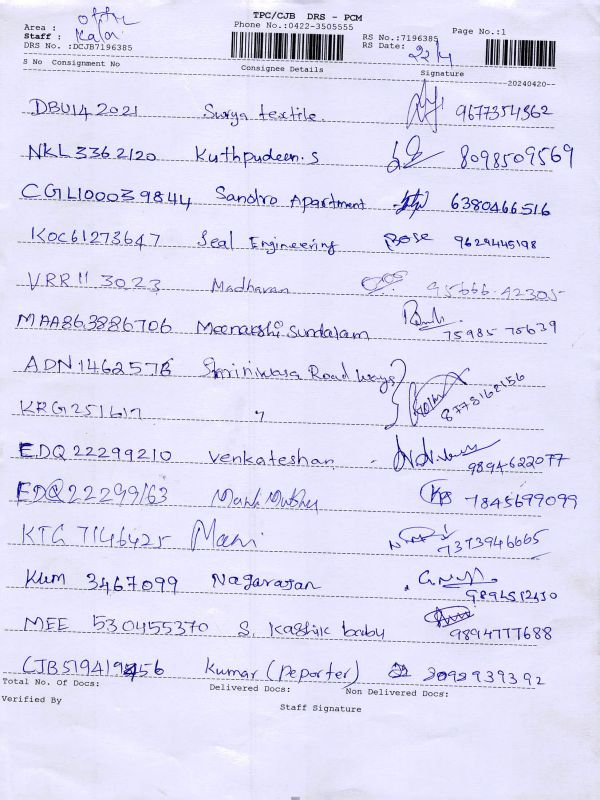 TPC/CJB DRS - PCM
Phone No.:0422-3505555
Area : office
Staff : Kalai
DRS No. :DCJB7196385
RS No.:7196385
RS Date: 22/4
Page No.:1
S No Consignment No Consignee Details Signature
20240420
DBU142021 Surya textile. 9677354362
NKL3362120 Kuthpudeen.S 8098509569
CGL100039844 Sandro Apartment 6380466516
KOC61273647 Seal Engineering Bose 9629445198
VRR113023 Madhavan 95666 42305
MAA863886706 Meenakshi Sundaram 75985 75639
ADN1462576 Shriniwasa Road ways
KRG251617 " 8778168156
EDQ22299210 Venkateshan 9894622077
EDQ22299163 7845699099
KTG 7146425 Mani 7373946665
KUM 3467099 Nagarajan
MEE 530455370 S. Kashik babu 9894777688
CJB519419456 Kumar (Peporter)
Total No. of Docs: Delivered Docs: Non Delivered Docs:
Verified By Staff Signature